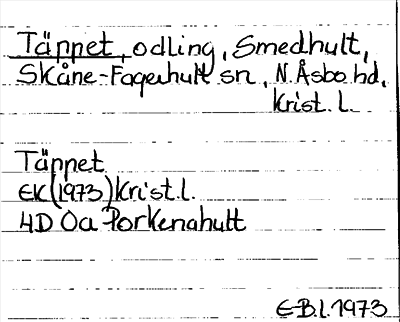 Täppet, odling, Smedhult,
Skåne-Fagerhult sn, N. Åsbo hd,
Krist. l.
Täppet
EK (1973) Krist. l.
4D Oa Porkenahult
E-B.l. 1973